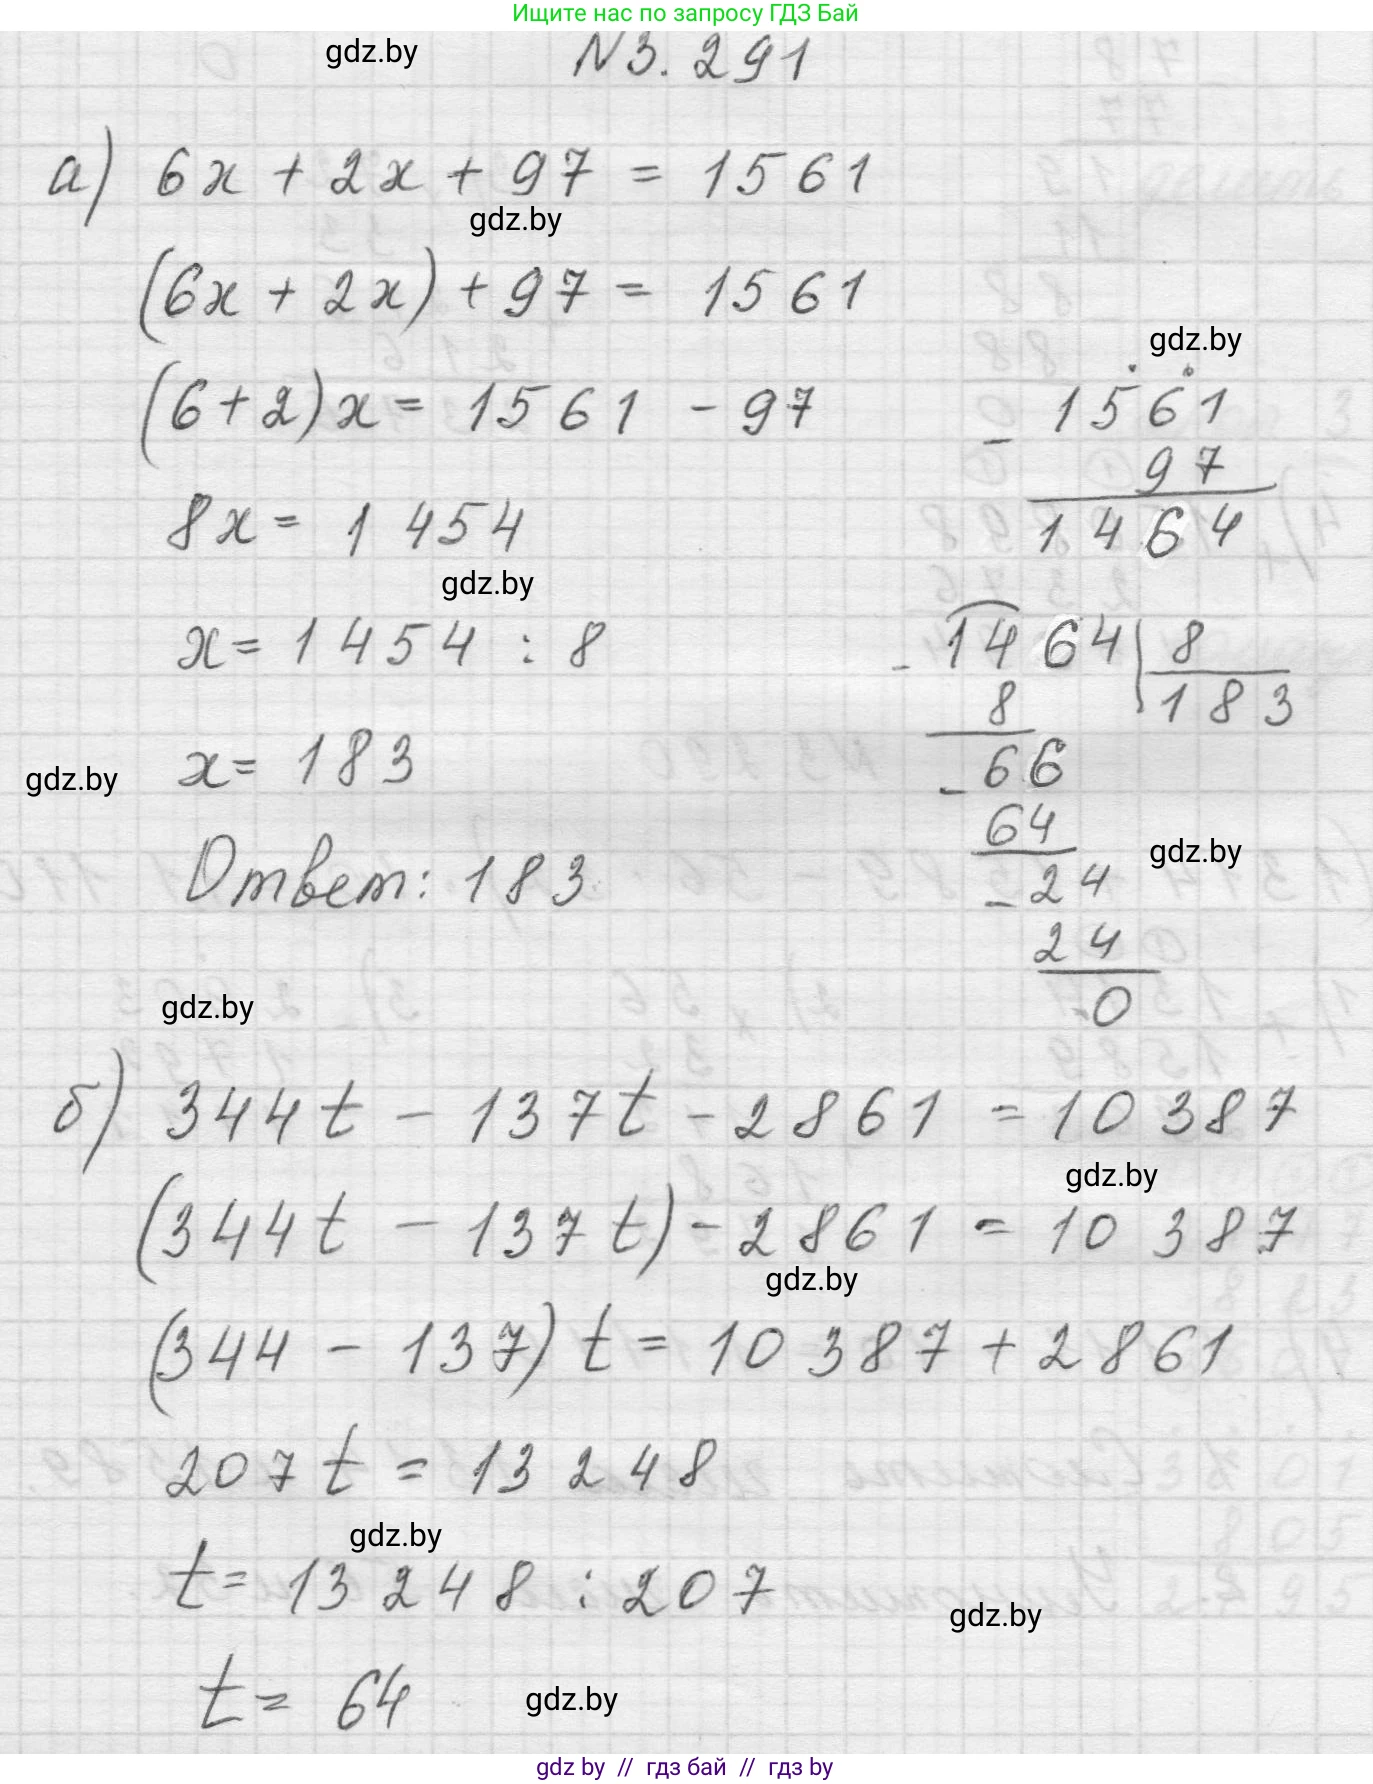 Ищите нас по запросу ГДЗ Бай
gdz.by
N3.291
а) 6x + 2x + 97 = 1561
gdz.by
(6x + 2x) + 97 = 1561
gdz.by
(6+2)x = 1561 - 97
- 1561
97
1464
8x = 1 454
gdz.by
x = 1454 : 8
- 1464 | 8
8 183
x = 183
gdz.by
- 66
64
gdz.by
Ответ: 183
- 24
24
0
gdz.by
б) 344t - 137t - 2861 = 10 387
gdz.by
(344t - 137t) - 2861 = 10 387
gdz.by
(344 - 137) t = 10 387 + 2861
207t = 13 248
gdz.by
t = 13 248 : 207
gdz.by
t = 64
gdz.by
gdz by // гдз бай // гдз by